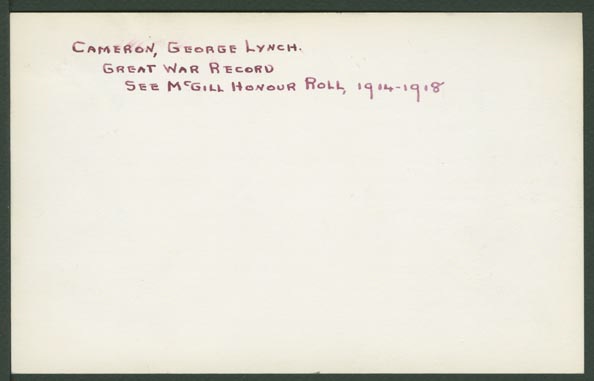 CAMERON, GEORGE LYNCH.
GREAT WAR RECORD
SEE McGILL HONOUR ROLL, 1914-1918